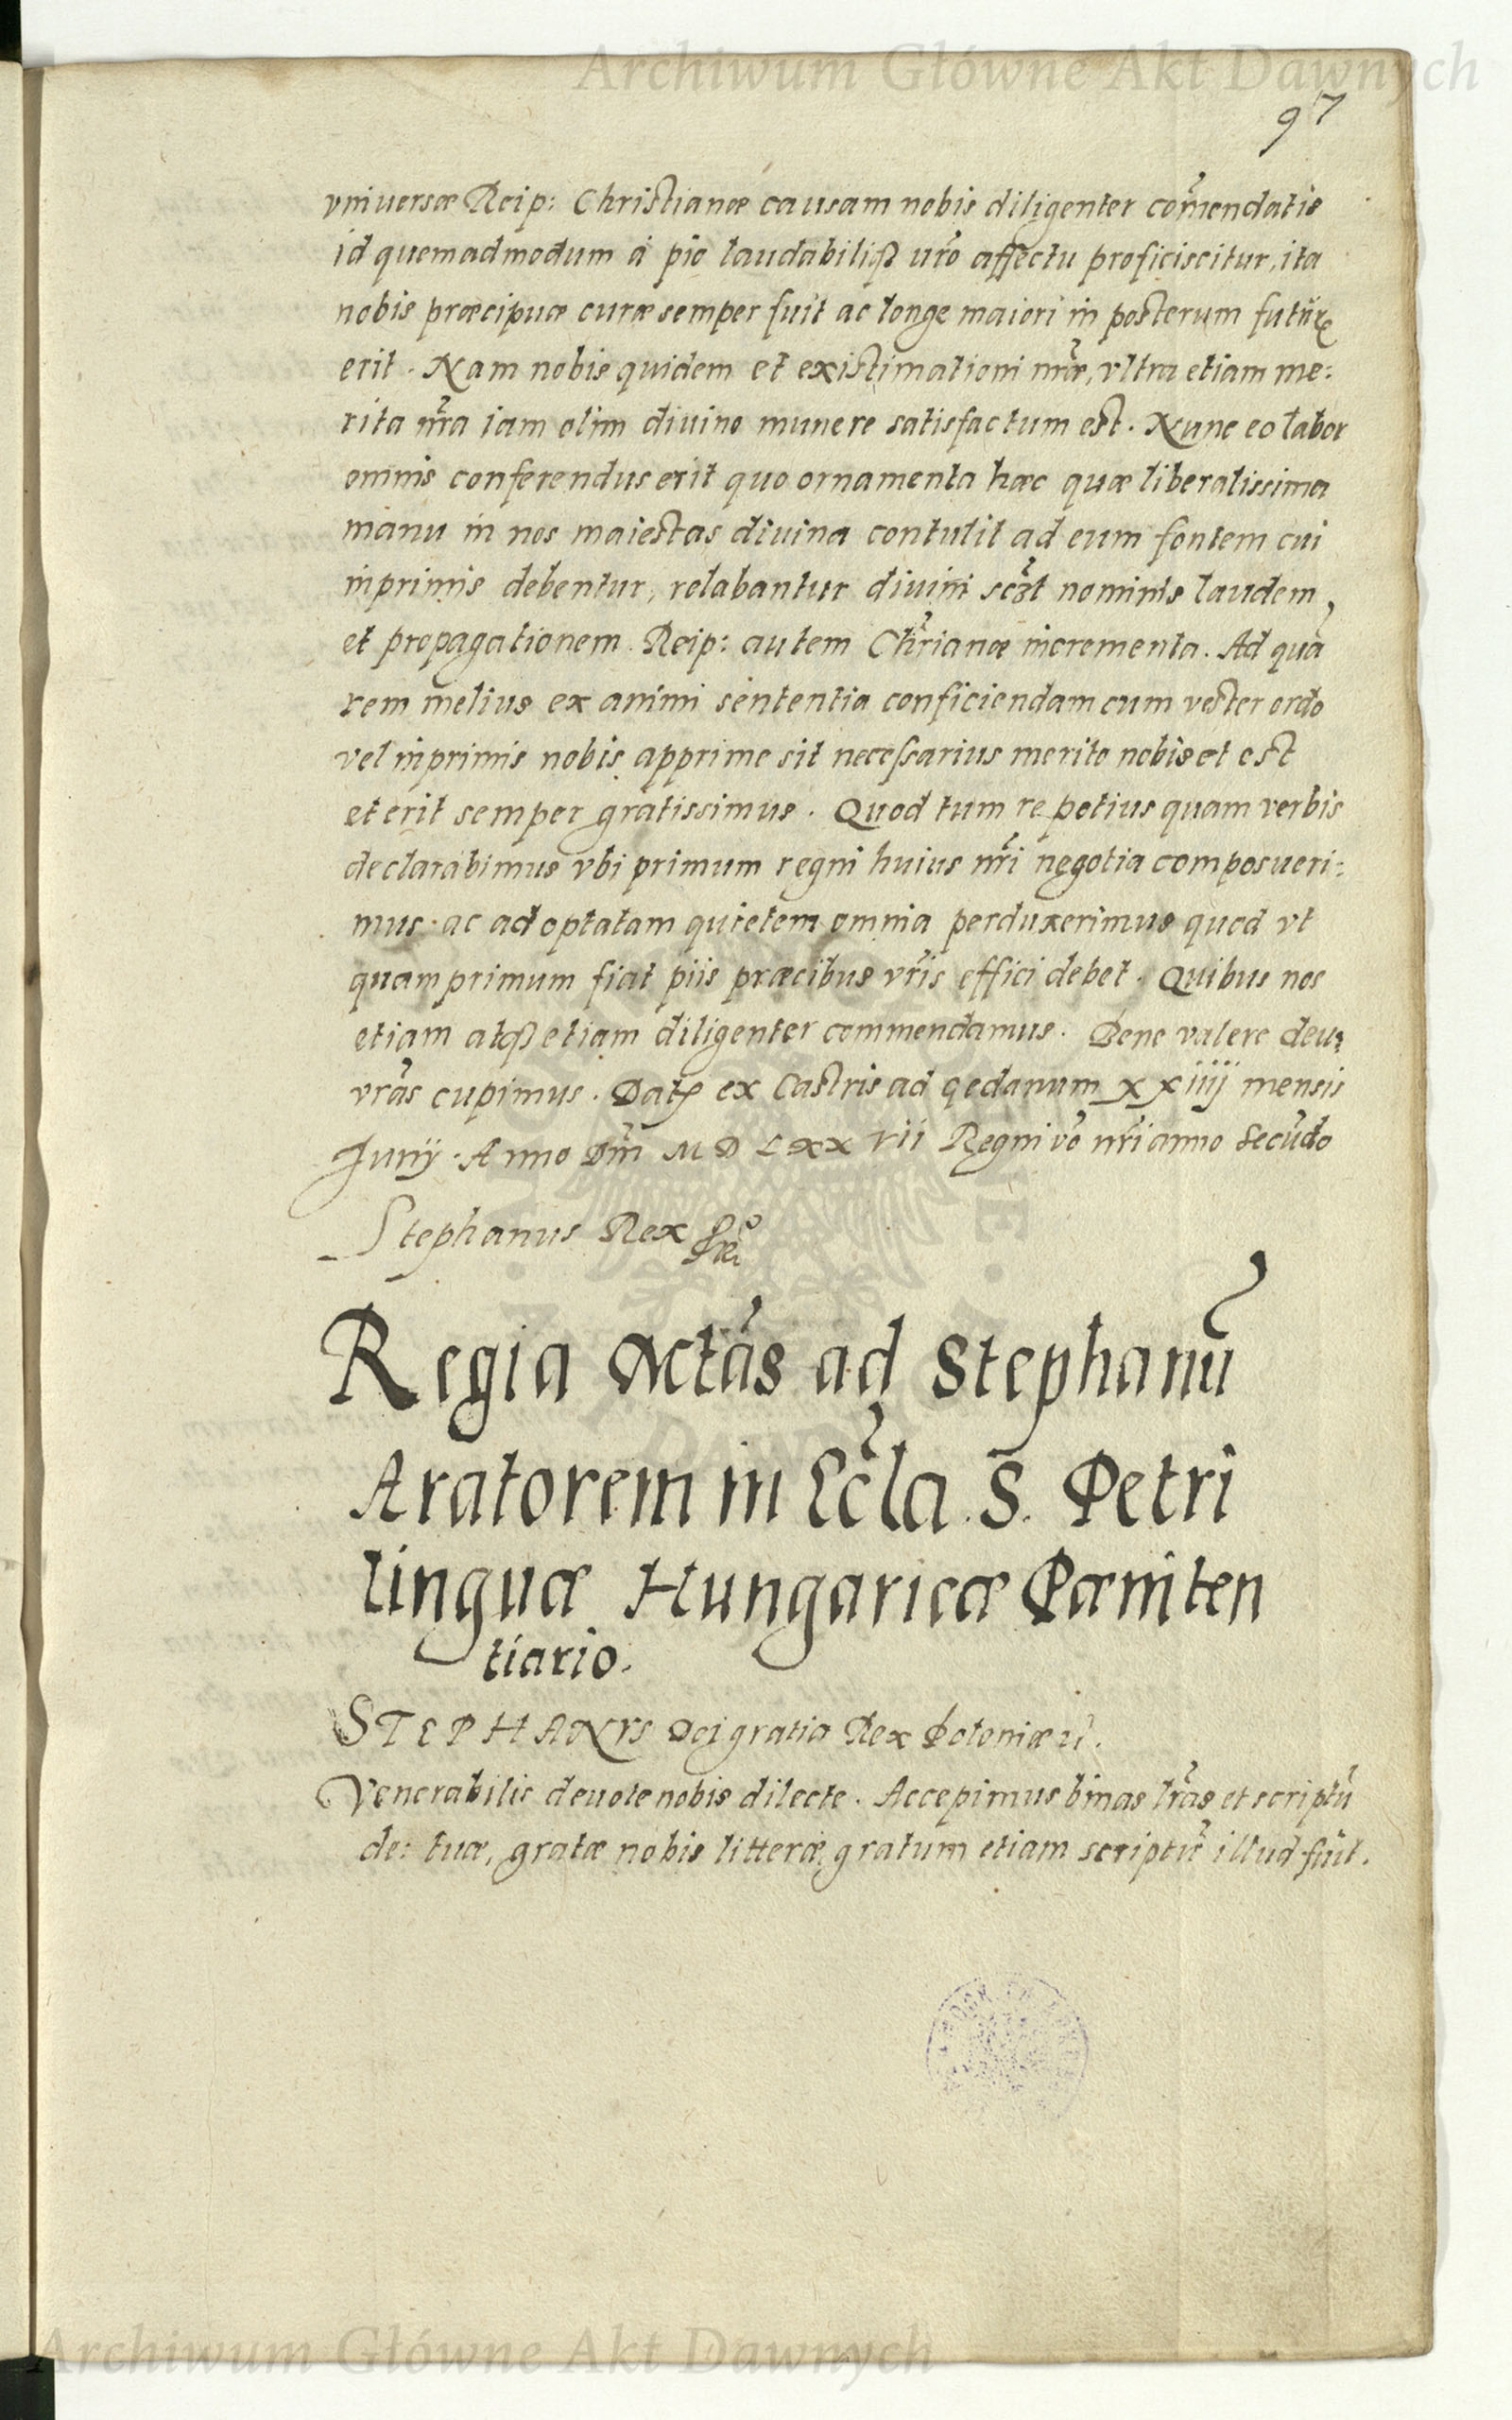 Archiwum Główne Akt Dawnych
97
vniuersæ Reip: Christianæ causam nobis diligenter com̃endatis
id quemadmodum à pio laudabiliqꝫ ur̃o affectu proficiscitur, ita
nobis præcipuæ curæ semper fuit ac longe maiori in posterum futuræ
erit. Nam nobis quidem et existimationi nr̃æ, vltra etiam me:
rita nr̃a iam olim diuino munere satisfactum est. Nunc eo labor
omnis conferendus erit quo ornamenta hæc quæ liberalissima
manu in nos maiestas diuina contulit ad eum fontem cui
inprimis debentur, relabantur diuini sczt̃ nominis laudem
et propagationem. Reip: autem Chr̃ianæ incrementa. Ad quã
rem melius ex animi sententia conficiendam cum vester ordo
vel inprimis nobis apprime sit necessarius merito nobis et est
et erit semper gratissimus. Quod tum re potius quam verbis
declarabimus vbi primum regni huius nr̃i negotia composueri:
mus ac ad optatam quietem omnia perduxerimus quod vt
quamprimum fiat piis præcibus vr̃is effici debet. Quibus nos
etiam atqꝫ etiam diligenter commendamus. Bene valere deu:
vr̃as cupimus. Datꝭ ex Castris ad gedanum xxiiij mensis
Junij. Anno Dñi MDLxxvii Regni vo᷃ nr̃i anno Secũdo
Stephanus Rex
Regia Mctãs ad Stephanũ
Aratorem in Eccl̃a. S. Petri
linguæ Hungaricæ Pæniten
tiario.
STEPHANVS Dei gratia Rex Poloniæ ꝛc̃.
Venerabilis deuote nobis dilecte. Accepimus binas lr̃as et scriptũ
de: tuæ, gratæ nobis litteræ, gratum etiam scriptũ illud fuit.
Archiwum Główne Akt Dawnych